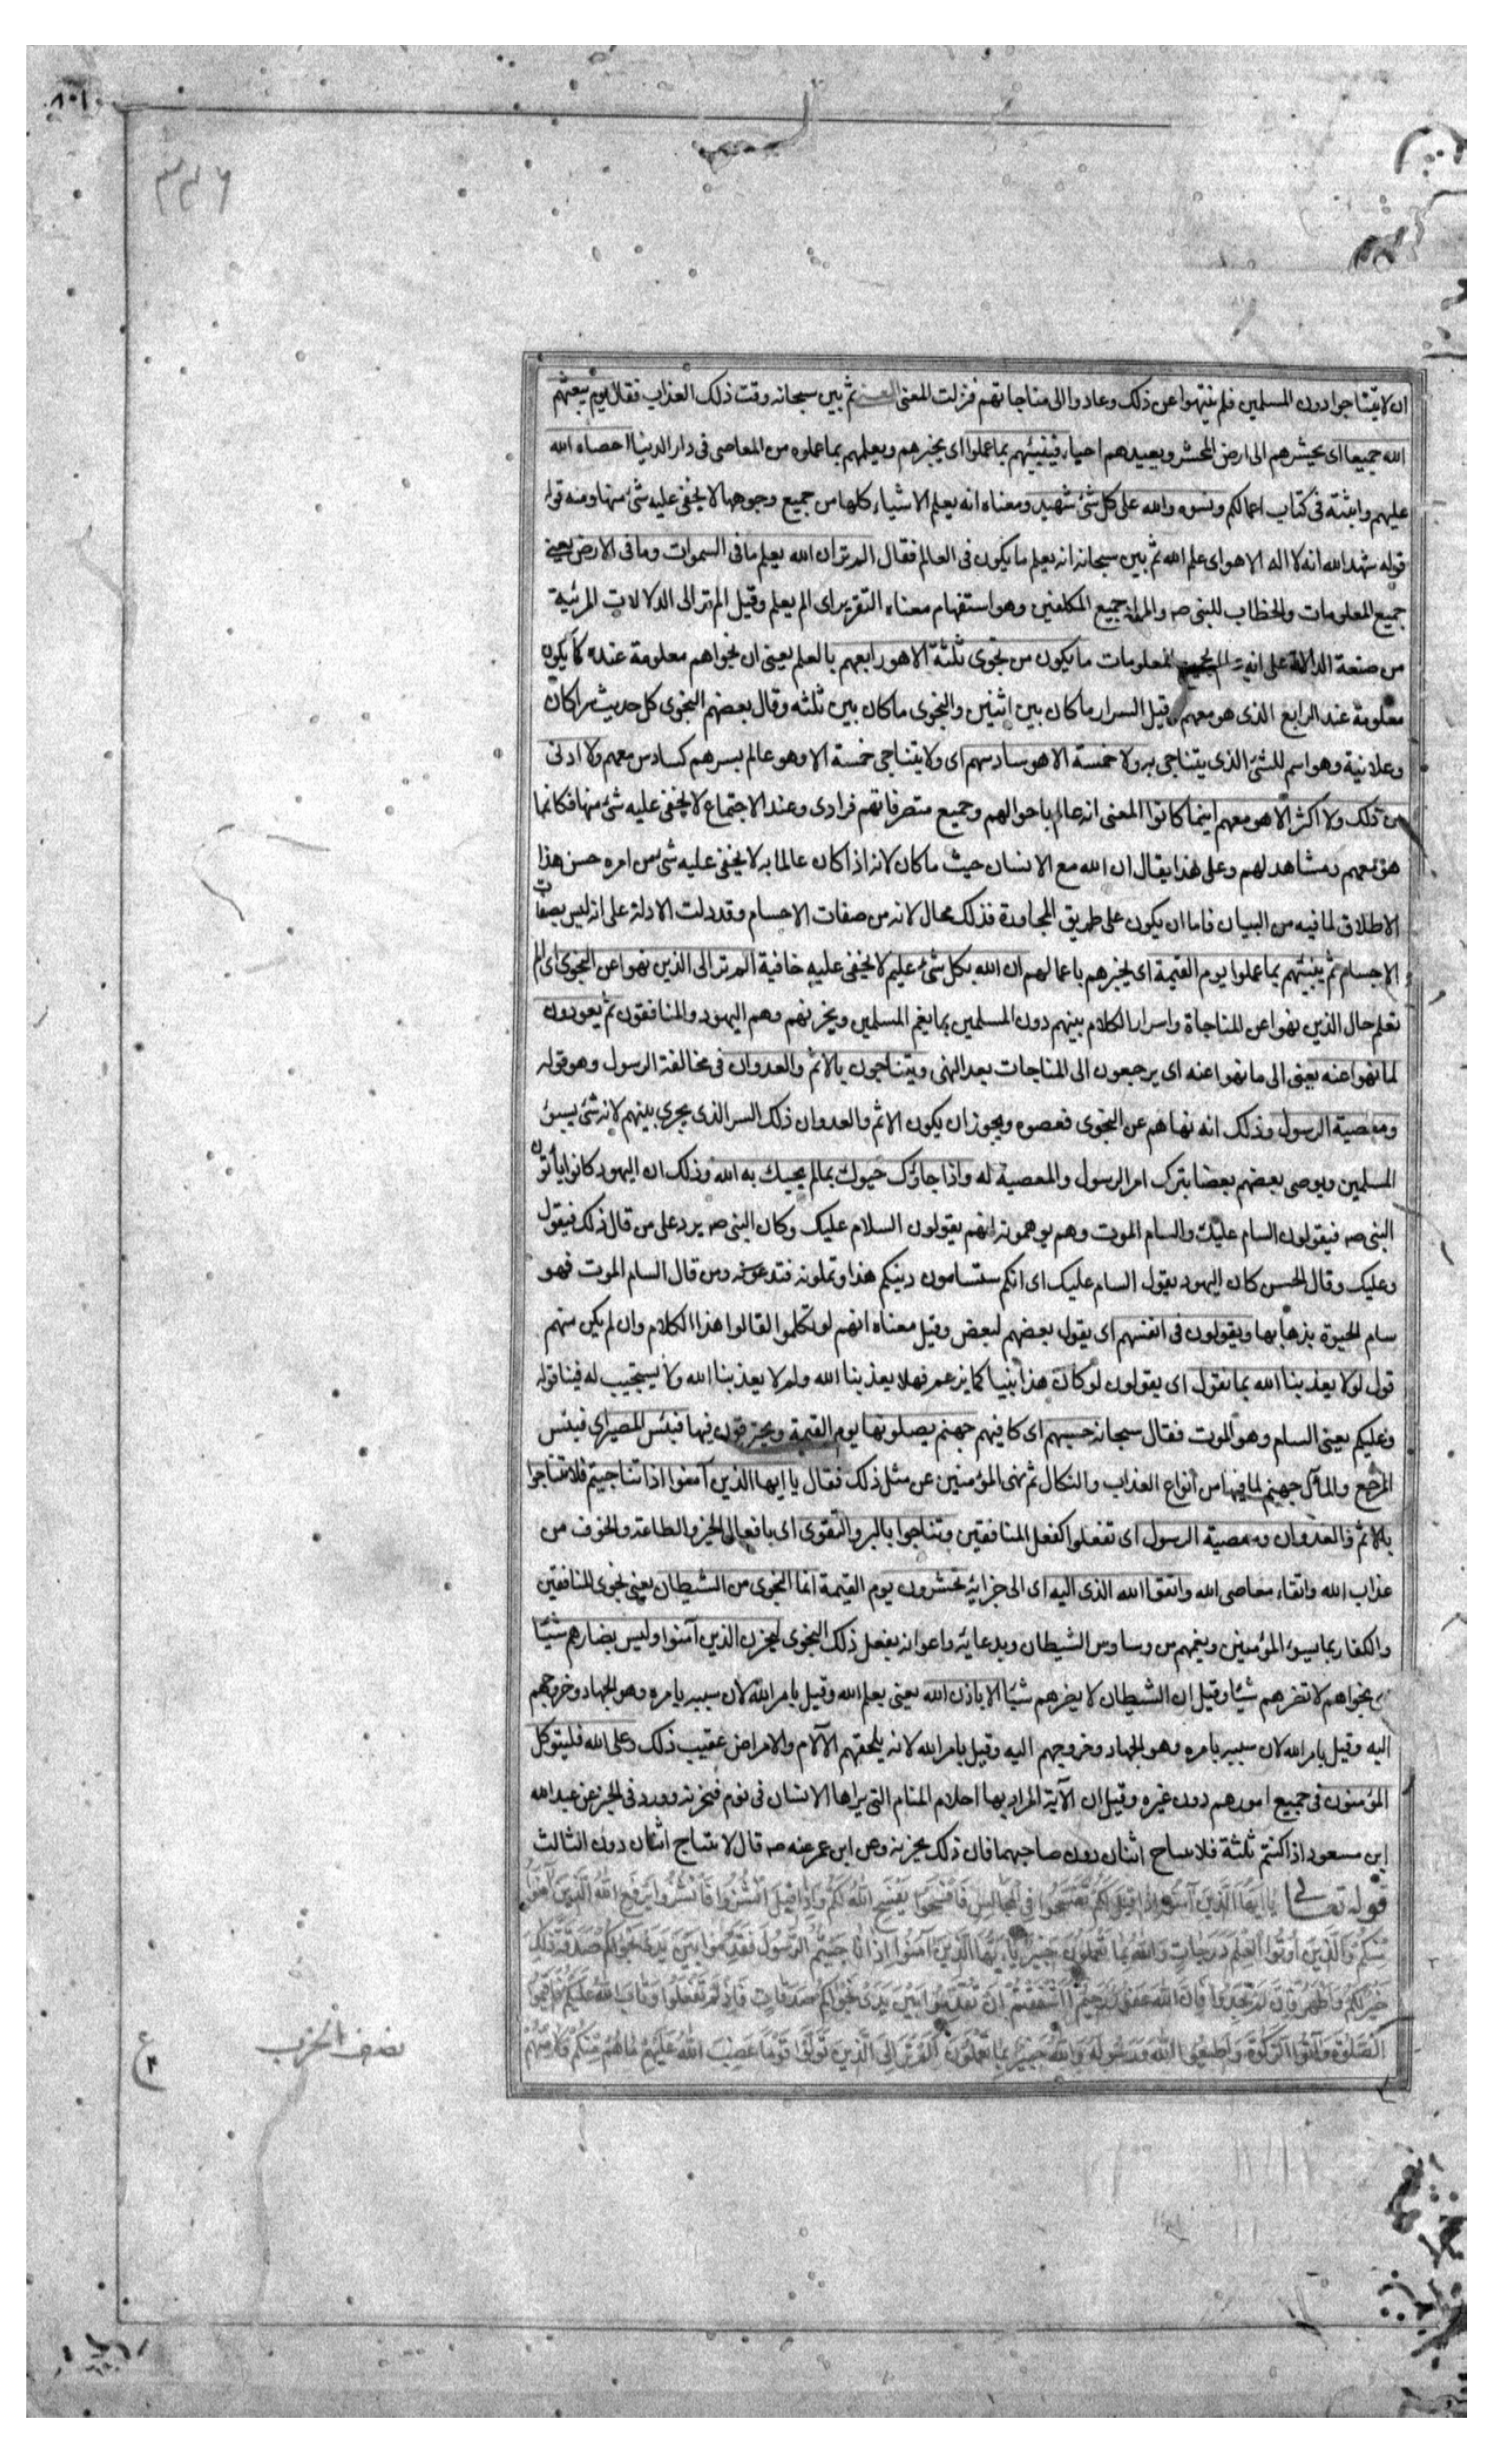 ٨٠١
٣٣٦
ان لا يتناجوا دون المسلمين فلم ينتهوا عن ذلك وعادوا الى مناجاتهم فنزلت المعنى ثم بين سبحانه وقت ذلك العذاب فقال يوم يبعثهم
الله جميعا اى يحشرهم الى ارض المحشر ويعيدهم احياء فينبئهم بما عملوا اى يخبرهم ويعلمهم بما عملوه من المعاصى فى دار الدنيا احصاه الله
عليهم واثبته فى كتاب اعمالكم ونسوه والله على كل شئ شهيد ومعناه انه يعلم الاشياء كلها من جميع وجوهها لا يخفى عليه شئ منها ومنه قوله
قوله شهد الله انه لا اله الا هو اى علم الله ثم بين سبحانه انه يعلم ما يكون فى العالم فقال الم تر ان الله يعلم ما فى السموات وما فى الارض يعنى
جميع المعلومات والخطاب للنبى صه والمراد جميع المكلفين وهو استفهام معناه التقرير اى الم يعلم وقيل الم تر الى الدلالات المرئية
من صنعة الدالة على انه المعلومات ما يكون من نجوى ثلثة الا هو رابعهم بالعلم يعنى ان نجواهم معلومة عنده كما يكون
معلومة عند الرابع الذى هو معهم وقيل السرار ما كان بين اثنين والنجوى ما كان بين ثلثه وقال بعضهم النجوى كل حديث سرا كان
وعلانية وهو اسم للشئ الذى يتناجى به ولا خمسة الا هو سادسهم اى ولا يتناجى خمسة الا وهو عالم بسرهم كسادس معهم ولا ادنى
من ذلك ولا اكثر الا هو معهم اينما كانوا المعنى انه عالم باحوالهم وجميع متصرفاتهم فرادى وعند الاجتماع لا يخفى عليه شئ منها فكانما
هو معهم ومشاهد لهم وعلى هذا يقال ان الله مع الانسان حيث ما كان لانه اذا كان عالما به لا يخفى عليه شى من امره حسن هذا
الاطلاق لما فيه من البيان فاما ان يكون على طريق المجاورة فذلك محال لانه من صفات الاجسام وقد دلت الادلة على انه ليس بصفات
الاجسام ثم ينبئهم بما عملوا يوم القيمة اى يخبرهم باعمالهم ان الله بكل شئ عليم لا يخفى عليه خافية الم تر الى الذين نهوا عن النجوى اى الم
تعلم حال الذين نهوا عن المناجاة واسرار الكلام بينهم دون المسلمين بما يغم المسلمين ويحزنهم وهم اليهود والمنافقون ثم يعودون
لما نهوا عنه يعنى الى ما نهوا عنه اى يرجعون الى المناجات بعد النهى ويتناجون بالاثم والعدوان فى مخالفة الرسول وهو قوله
ومعصية الرسول وذلك انه نهاهم عن النجوى فعصوه ويجوز ان يكون الاثم والعدوان ذلك السر الذى يجرى بينهم لانه شئ يسئ
المسلمين ويوصى بعضهم بعضا بترك امر الرسول والمعصية له واذا جاؤك حيوك بما لم يحيك به الله وذلك ان اليهود كانوا يأتون
النبى صه فيقولون السام عليك والسام الموت وهم يوهمونه انهم يقولون السلام عليك وكان النبى صه يرد على من قال ذلك فيقول
وعليك وقال الحسن كان اليهود يقول السام عليك اى انكم ستسامون دينكم هذا وتملونه فتدعونه ومن قال السام الموت فهو
سام الحيوة بذهابها ويقولون فى انفسهم اى يقول بعضهم لبعض وقيل معناه انهم لو تكلموا لقالوا هذا الكلام وان لم يكن منهم
قول لولا يعذبنا الله بما نقول اى يقولون لو كان هذا نبيا كما يزعم فهلا يعذبنا الله ولم لا يعذبنا الله ولا يستجيب له فينا قوله
وعليكم يعنى السلم وهو الموت فقال سبحانه حسبهم اى كافيهم جهنم يصلونها يوم القيمة ويحترقون فيها فبئس المصير اى فبئس
المرجع والمآل جهنم لما فيها من انواع العذاب والنكال ثم نهى المؤمنين عن مثل ذلك فقال يا ايها الذين آمنوا اذا تناجيتم فلا تتناجوا
بالاثم والعدوان ومعصية الرسول اى تفعلوا كفعل المنافقين وتناجوا بالبر والتقوى اى بافعال الخير والطاعة والخوف من
عذاب الله واتقاء معاصى الله واتقوا الله الذى اليه اى الى جزائه تحشرون يوم القيمة انما النجوى من الشيطان يعنى نجوى المنافقين
والكفار بما يسوء المؤمنين ويغمهم من وساوس الشيطان وبدعايه واعوانه يفعل ذلك النجوى ليحزن الذين آمنوا وليس بضارهم شيئا
نجواهم لا تضرهم شيئا وقيل ان الشيطان لا يضرهم شيئا الا باذن الله يعنى بعلم الله وقيل بامر الله لان سببه بامره وهو الجهاد وخروجهم
اليه وقيل بامر الله لان سببه بامره وهو الجهاد وخروجهم اليه وقيل بامر الله لانه يلحقهم الآلام والامراض عقيب ذلك وعلى الله فليتوكل
المؤمنون فى جميع امورهم دون غيره وقيل ان الآية المراد بها احلام المنام التى يراها الانسان فى نومه فتحزنه وورد فى الخبر عن عبد الله
ابن مسعود اذا كنتم ثلثة فلا يتناج اثنان دون صاحبهما فان ذلك يحزنه وعن ابن عمر عنه صه قال لا يتناج اثنان دون الثالث
قوله تعالى يا ايها الذين آمنوا اذا قيل لكم تفسحوا فى المجالس فافسحوا يفسح الله لكم واذا قيل انشزوا فانشزوا يرفع الله الذين آمنوا
منكم والذين اوتوا العلم درجات والله بما تعملون خبير يا ايها الذين آمنوا اذا ناجيتم الرسول فقدموا بين يدى نجواكم صدقة ذلك
خير لكم واطهر فان لم تجدوا فان الله غفور رحيم أاشفقتم ان تقدموا بين يدى نجواكم صدقات فاذ لم تفعلوا وتاب الله عليكم فاقيموا
الصلوة وآتوا الزكوة واطيعوا الله ورسوله والله خبير بما تعملون الم تر الى الذين تولوا قوما غضب الله عليهم ما هم منكم ولا منهم
نصف الحزب
ع